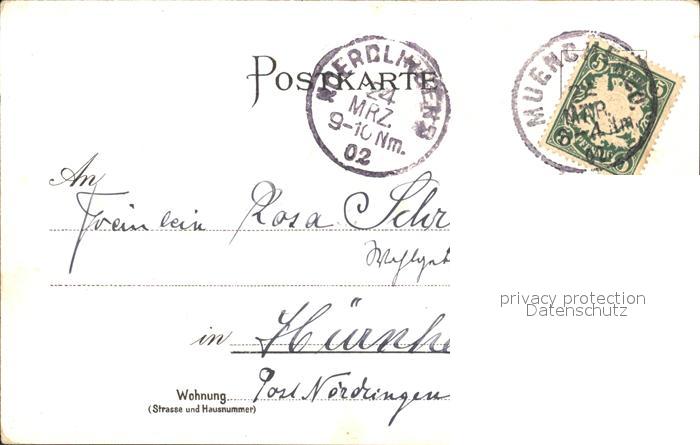 POSTKARTE
NOERDLINGEN
24
MRZ.
9-10 Nm.
02
MUENCHEN
5
5
5
5
An
Fräulein Rosa Schr
Wohlgeb
in Hürnhe
Wohnung Post Nördlingen
(Strasse und Hausnummer)
privacy protection
Datenschutz